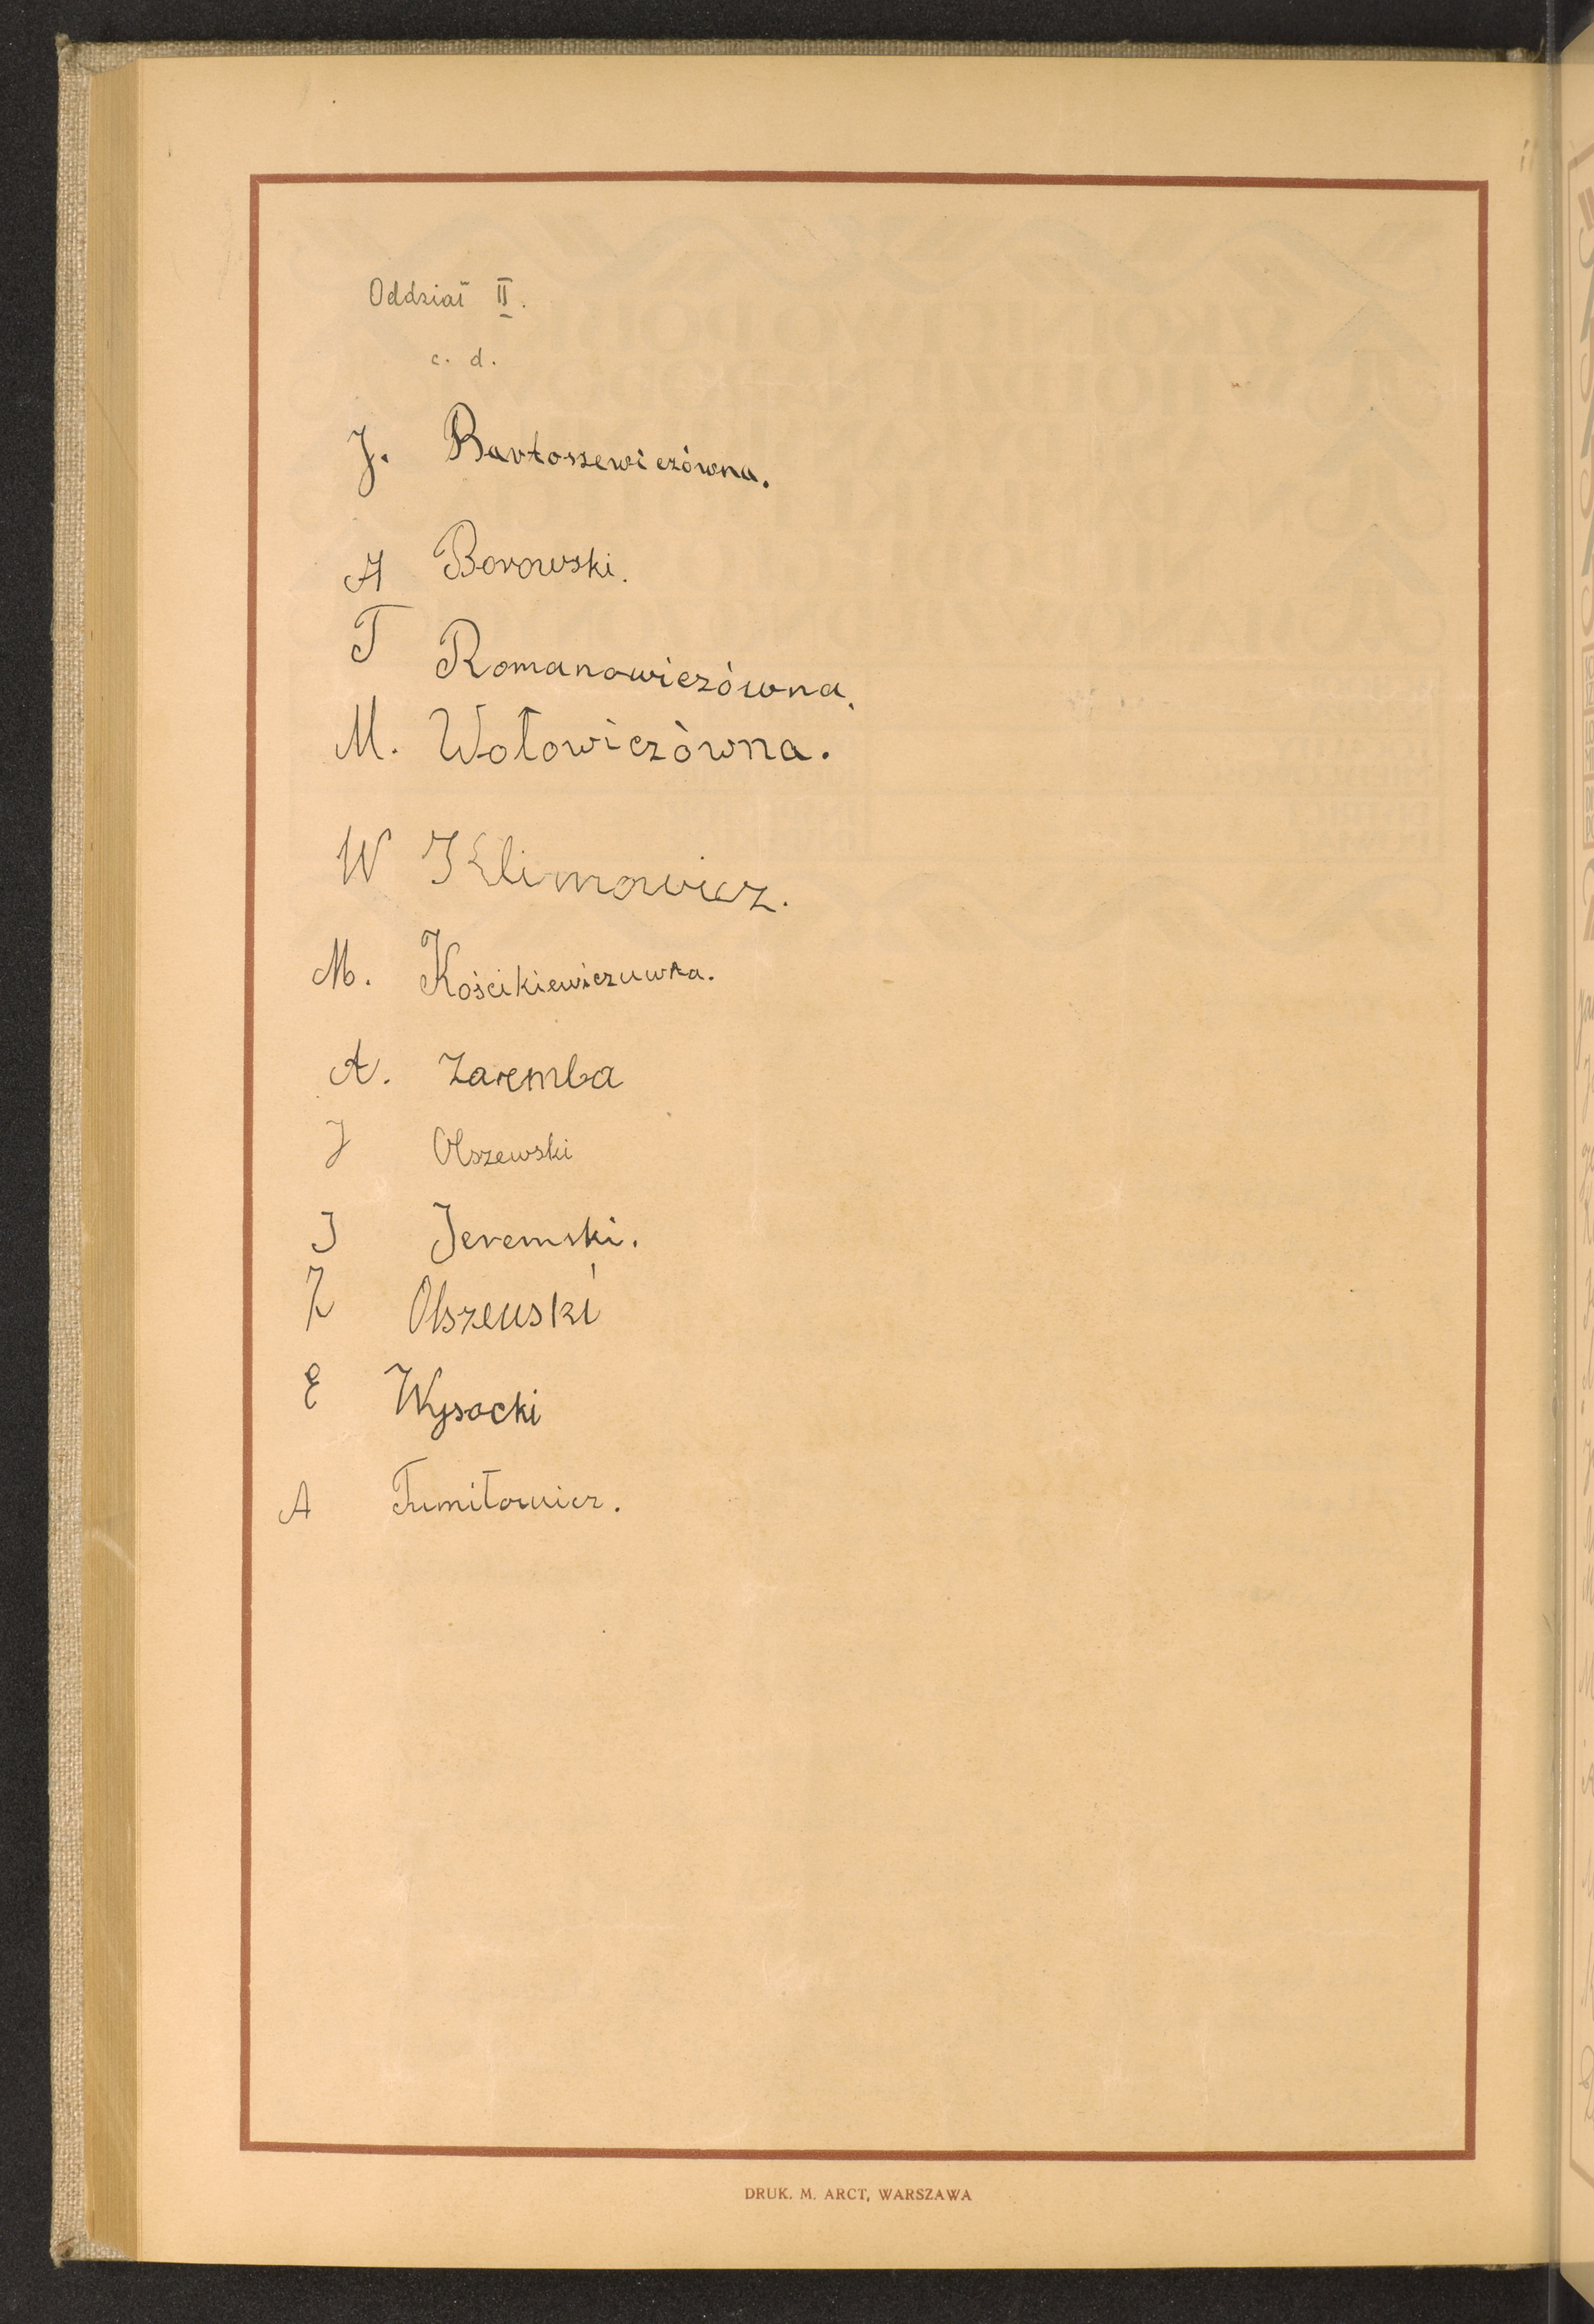 Oddział II.
c. d.
J. Bartoszewiczówna.
A Borowski.
T Romanowiczówna.
M. Wołowiczówna.
W Klimowicz.
M. Kościkiewiczuwna.
A. Zaremba
J Olszewski
J Jeremski.
Z Olszeuski
E Wysocki
A Tumiłowicz.
DRUK. M. ARCT, WARSZAWA